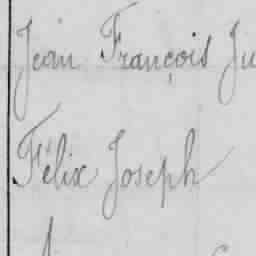 Jean François Ju
Félix Joseph